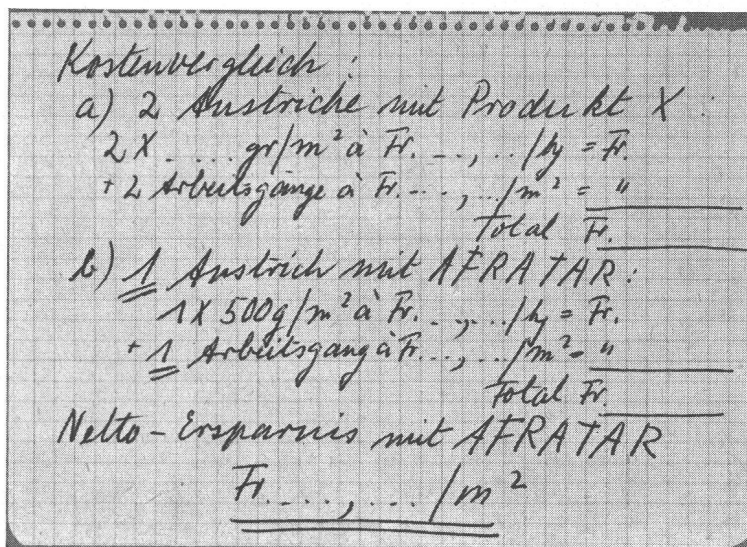 Kostenvergleich:
a) 2 Anstriche mit Produkt X:
2 X .... gr/m² à Fr. ..,../kg = Fr.
+ 2 Arbeitsgänge à Fr. ...,../m² = "
Total Fr.
b) 1 Anstrich mit AFRATAR:
1 X 500g/m² à Fr. ..,../kg = Fr.
+ 1 Arbeitsgang à Fr. ..,../m² = "
Total Fr.
Netto-Ersparnis mit AFRATAR
Fr. ...,.../m²